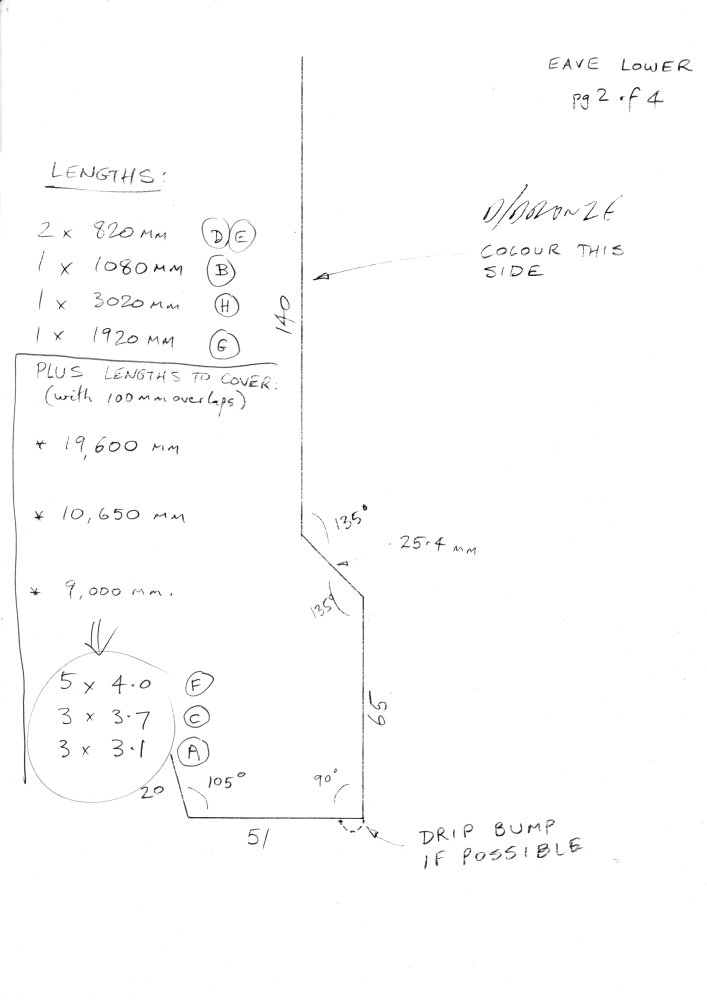 EAVE LOWER
pg 2 of 4
LENGTHS:
2 x 820 MM D/E
1 x 1080 MM B
1 x 3020 MM H
1 x 1920 MM G
PLUS LENGTHS TO COVER:
(with 100mm overlaps)
* 19,600 MM
* 10,650 MM
* 9,000 MM.
5 x 4.0 F
3 x 3.7 C
3 x 3.1 A
D/BRONZE
COLOUR THIS
SIDE
140
135°
25.4 MM
135°
65
20
105°
90°
51
DRIP BUMP
IF POSSIBLE